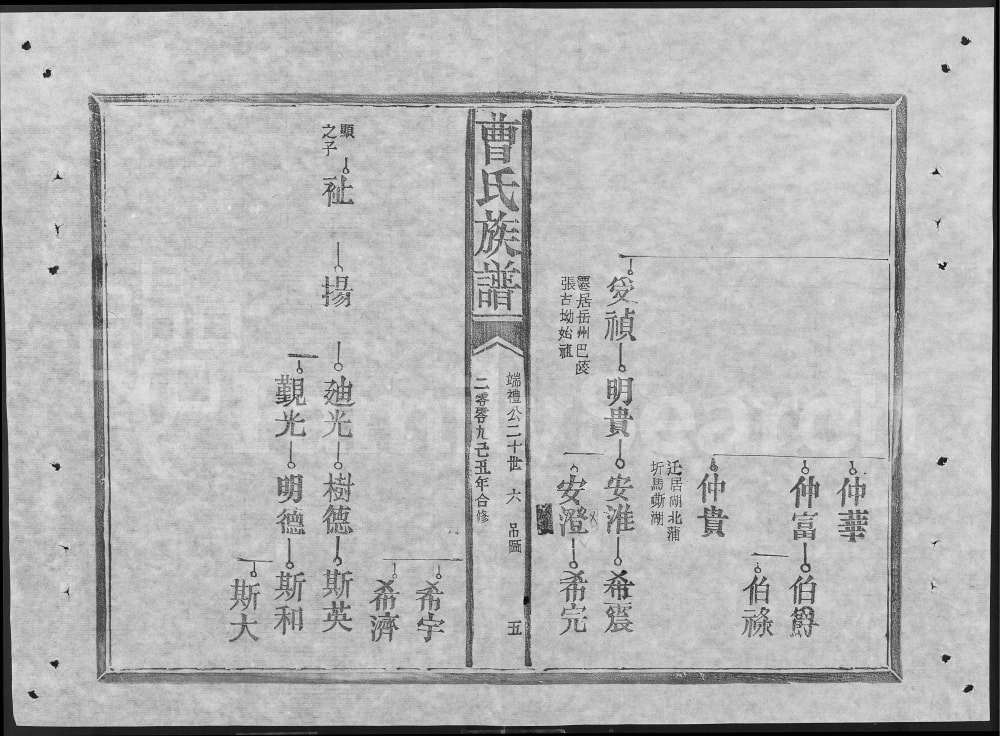 仲華
仲富
伯爵
伯祿
仲貴
迁居胡北蒲
圻馬蜥湖
受禎
明貴
安淮
希震
遷居岳州巴陵
張古坳始祖
安澄
希完
曹氏族譜
端禮公二十世 六 吊圖 五
二零零九己丑年合修
希宇
希濟
顯
之子
祉
揚
廸光
樹德
斯英
覲光
明德
斯和
斯大